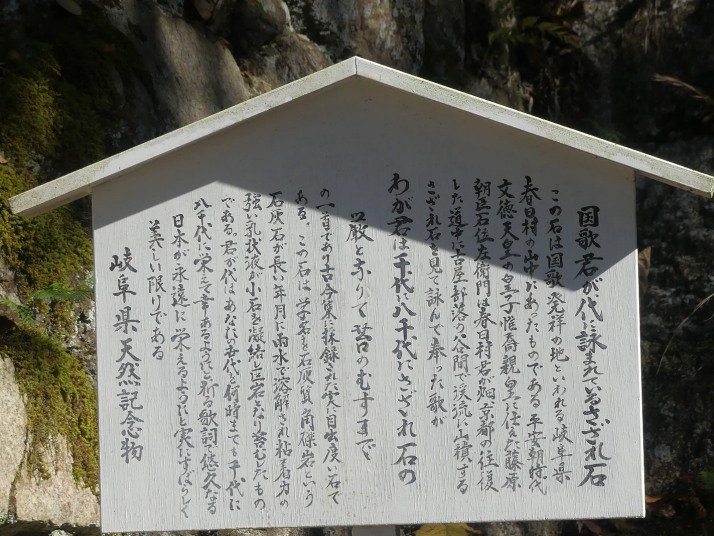 国歌君が代に詠まれているさざれ石
この石は国歌発祥の地といわれる岐阜県
春日村の山中にあったものである 平安朝時代
文徳天皇の皇子惟喬親皇に仕えた藤原
朝臣石位左衛門は春日村君が畑京都の往復
した道中に古屋部落の谷間で渓流に山積する
さざれ石を見て詠んで奉った歌が
わが君は千代に八千代にさざれ石の
巌となりて苔のむすまで
の一首であり古今集に採録された実に目出度い石で
ある。この石は学名を石灰質角礫岩という
石灰石が長い年月に雨水で溶解され粘着力の
強い乳状液が小石を凝結し巨岩となり苔むしたもの
である。君が代はあなたの君代を何時までも千代に
八千代に栄えて幸あるようにと祈る歌詞で悠久なる
日本が永遠に栄えるようにと実にすばらしく
美しい限りである
岐阜県天然記念物